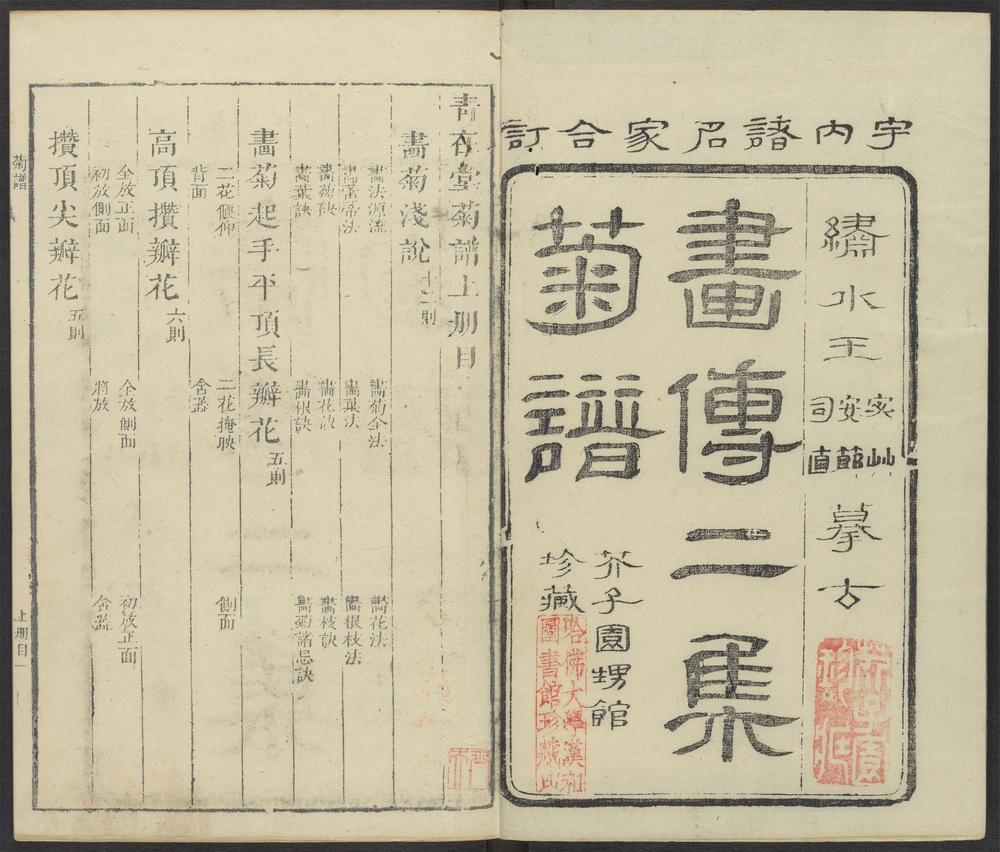 宇內諸名家合訂
繡水王宓草安節司直摹古
畫傳二集
菊譜
芥子園甥館
珍藏
哈佛大學漢和
圖書館珍藏印
青在堂菊譜上册目
畫菊淺說十二則
畫法源流 畫菊全法 畫花法
畫蕾蒂法 畫葉法 畫根枝法
畫菊訣 畫花訣 畫枝訣
畫葉訣 畫根訣 畫菊諸忌訣
畫菊起手平頂長瓣花五則
二花偃仰 二花掩映 側面
背面 含蕊
高頂攢瓣花六則
全放正面 全放側面 初放正面
初放側面 將放 含蕊
攢頂尖瓣花五則
菊譜 上册目 一